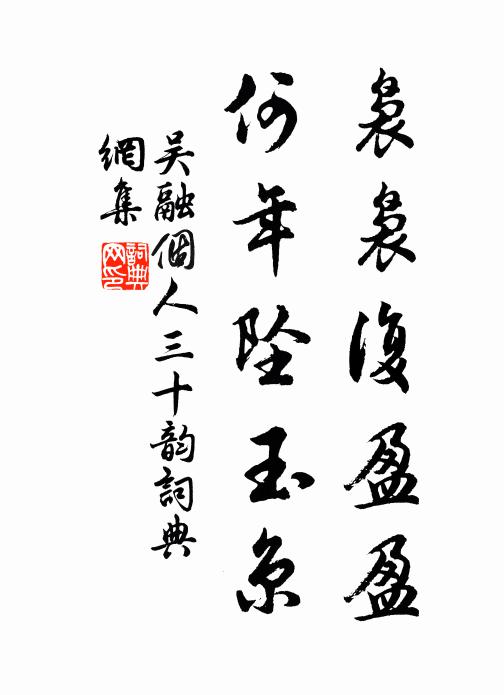 裊裊復盈盈
何年坠玉京
吴融個人三十韵詞典
網集
詞典
网印